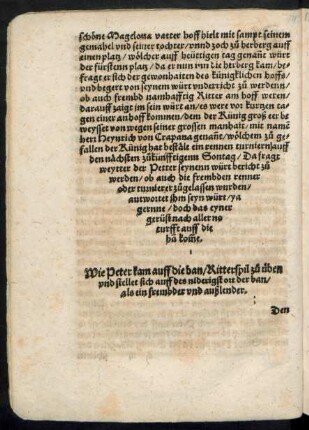 schöne Magelona vatter hoff hielt mit sampt seinem
gemahel vnd seiner tochter/ vnnd zoch zů herberg auff
einen platz/ wölcher auff heüttigen tag genañt würt
der fürsten platz/ da er nun inn die herberg kam/ be⸗
fraget er sich der gewonhaiten des küniglichen hoffs/
vnd begert von seynem würt vnderricht zů werden/
ob auch frembd namhafftig Ritter am hoff weren/
darauff zaigt im sein würt an/ es were vor kurtzen ta⸗
gen einer an hoff kommen/ dem der Künig groß eer be
weyßet von wegen seiner grossen manhait/ mit namē
herr Heynrich von Crapana genañt/ wölchem zů ge⸗
fallen der Künig hat bestält ein rennen turniern auff
den nächsten zůkünfftigenn Sontag/ Da fragt
weytter der Petter seynem würt bericht zů
werden/ ob auch die frembden renner
oder turnierer zůgelassen wurden/
antwortet ihm seyn würt/ ya
gernne/ doch das eyner
gerüst nach aller no
turfft auff die
bā kom̄e,
Wie Peter kam auff die ban/ Ritterspil zů üben
vnd stellet sich auff des niderigst ort der ban/
als ein frembder vnd außlender.
Den